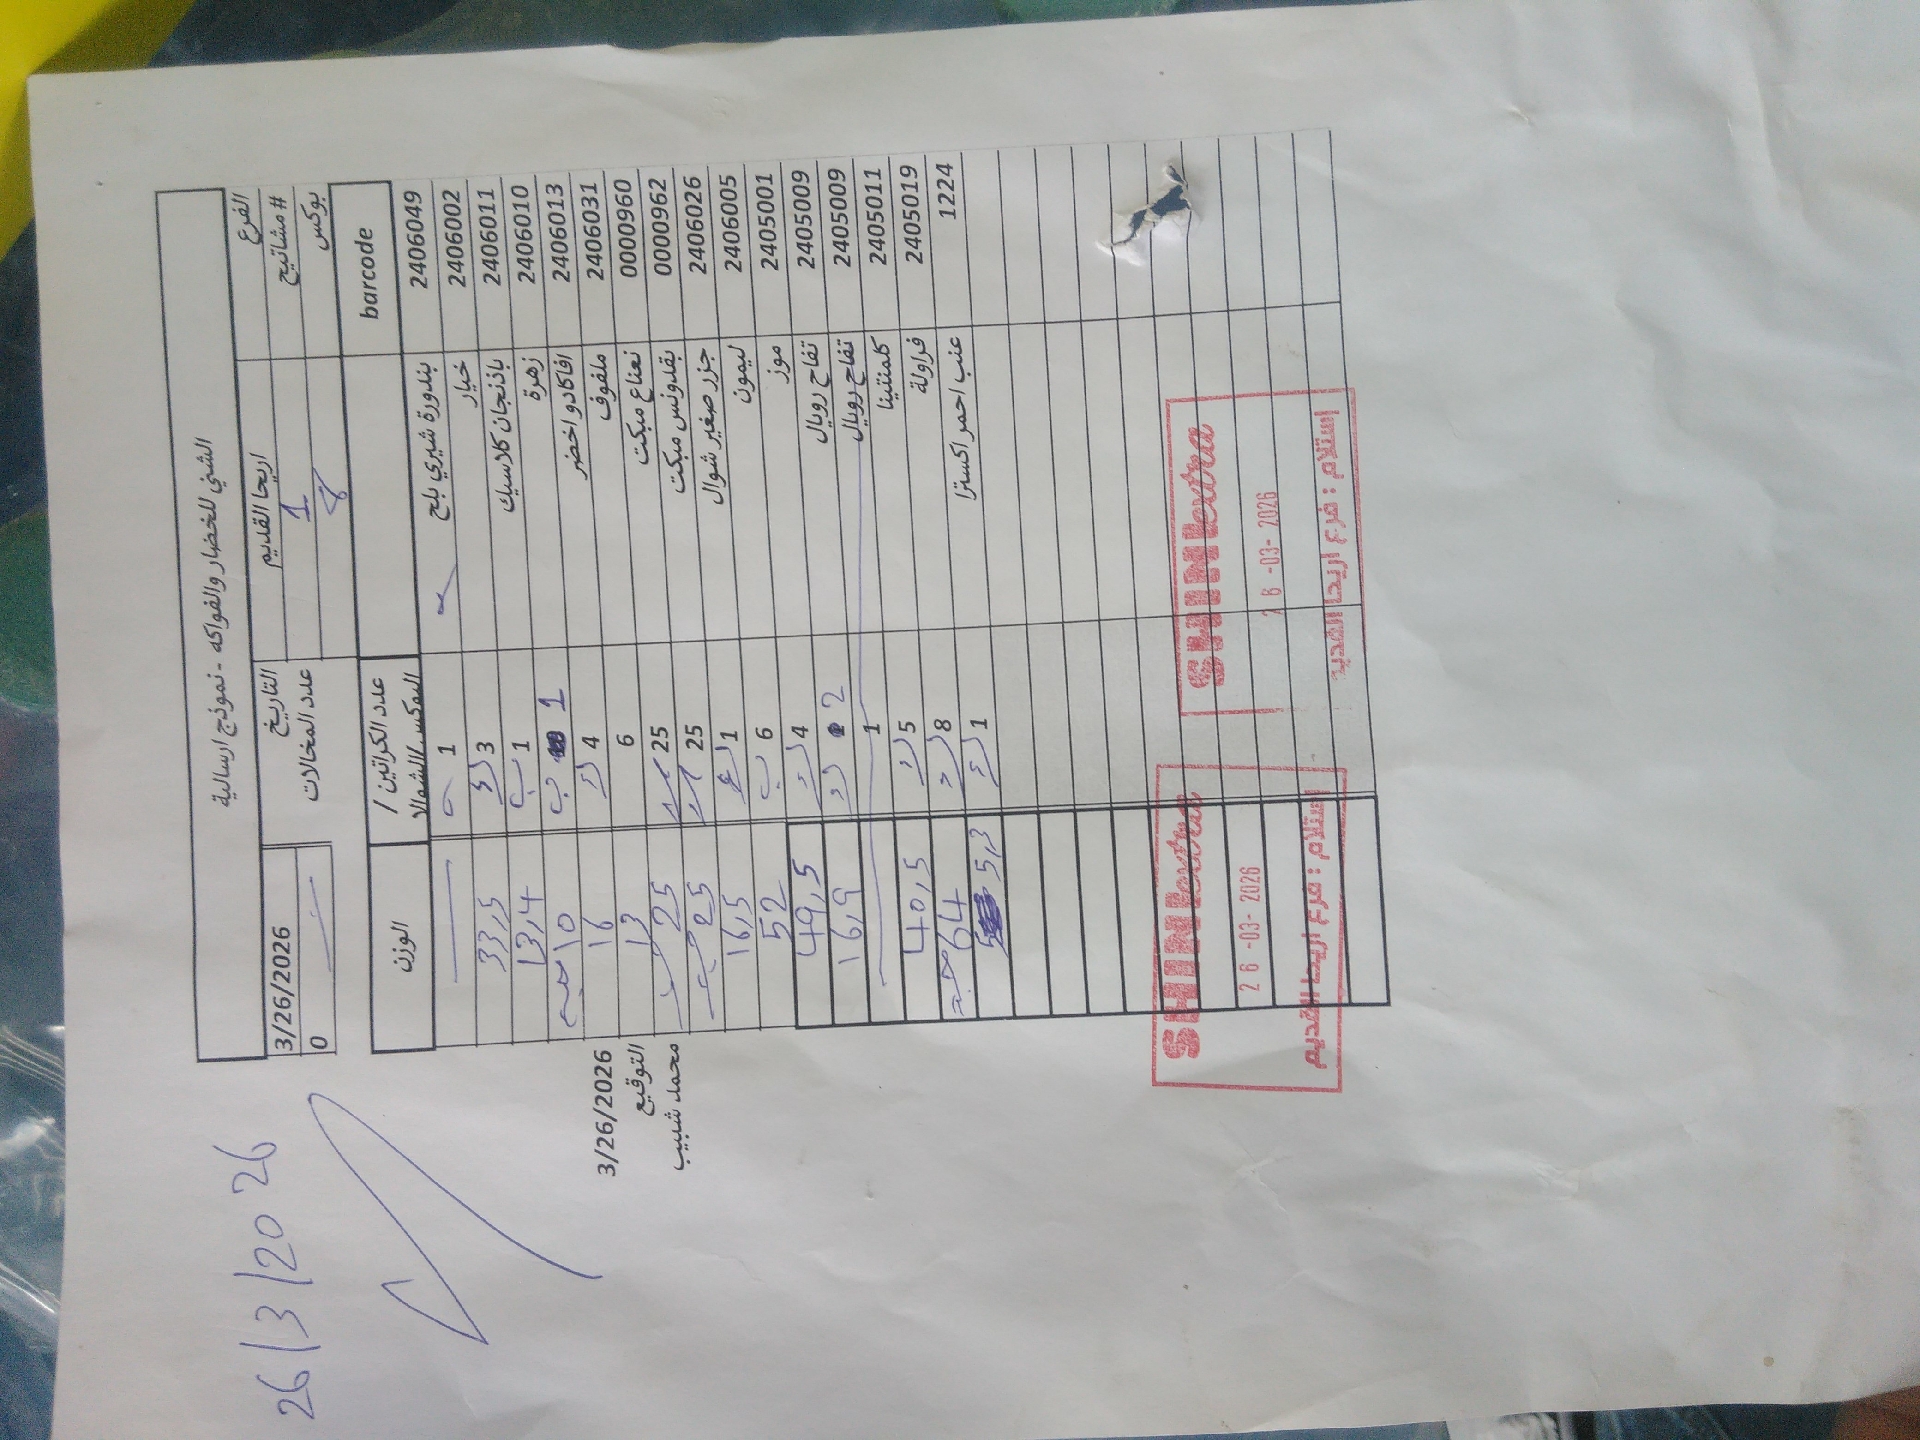 الشني للخضار والفواكه - نموذج ارسالية
الفرع اريحا القديم التاريخ 3/26/2026
#مشاتيح 1 عدد المخالات 0
بوكس 8
barcode عدد الكراتين / البكس/الشوالا الوزن
2406049 بندورة شيري بلح 1
2406002 خيار 3 33,5
2406011 باذنجان كلاسيك 1 13,4
2406010 زهرة 1 10
2406013 افاكادو اخضر 4 16
2406031 ملفوف 6 13
0000960 نعناع مبكت 25 25
0000962 بقدونس مبكت 25 25
2406026 جزر صغير شوال 1 16,5
2406005 ليمون 6 52
2405001 موز 4 49,5
2405009 تفاح رويال 2 16,9
2405009 تفاح رويال 1
2405011 كلمنتينا 5 40,5
2405019 فراولة 8 64
1224 عنب احمر اكسترا 1 5,3
3/26/2026
التوقيع
محمد شبيب
26/3/2026
SHINI extra
26-03-2026
استلام : فرع اريحا القديم
SHINI extra
26-03-2026
استلام : فرع اريحا القديم